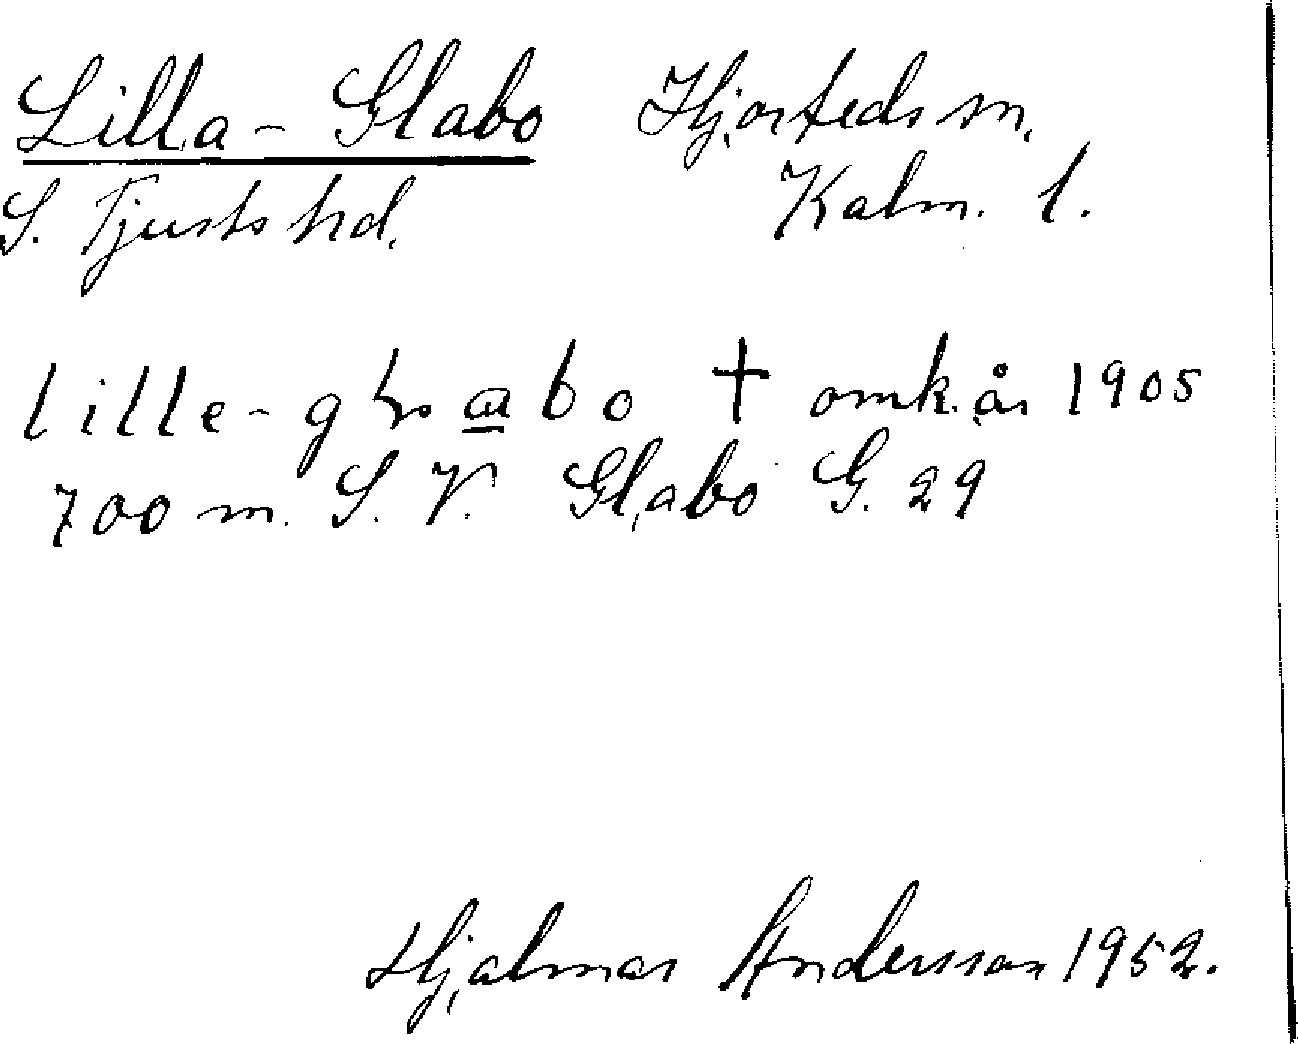 Lilla-Glabo Hjorteds sn.
S. Tjusts hd. Kalm. l.
lille- bo † omkr. år 1905
700 m. S. V. Glabo G. 29
Hjalmar Andersson 1952.